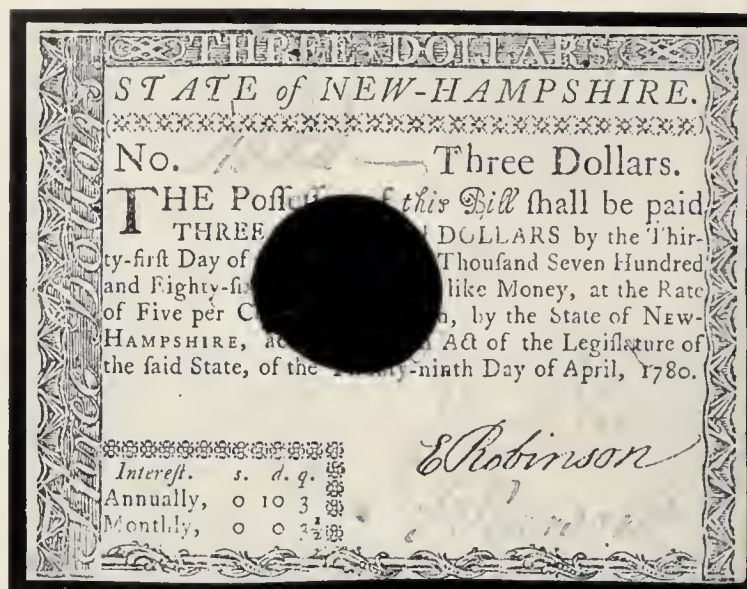 THREE DOLLARS
Three Dollars
STATE of NEW-HAMPSHIRE.
No. Three Dollars.
THE Poſſeſſ of this Bill ſhall be paid
THREE DOLLARS by the Thir-
ty-firſt Day of Thouſand Seven Hundred
and Eighty-ſi like Money, at the Rate
of Five per C , by the State of NEW-
HAMPSHIRE, ac Act of the Legiſlature of
the ſaid State, of the Twenty-ninth Day of April, 1780.
E Robinson
Intereſt. s. d. q.
Annually, 0 10 3
Monthly, 0 0 3½